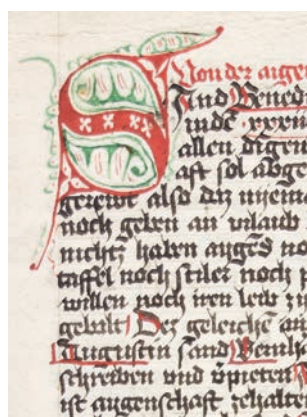 Von der aigen
Sand Bened
in dē xxxiii
allen dingen
aft sol abge
gerewt also daz nyem
noch geben an vrlaub
nichtz haben aygēs no
taffel noch stiler noch
willen noch iren leib zu
gebalt Der geleichē au
Augustin sand Bernha
schreiben vnd vpieten
ist aygenschaft zehalten